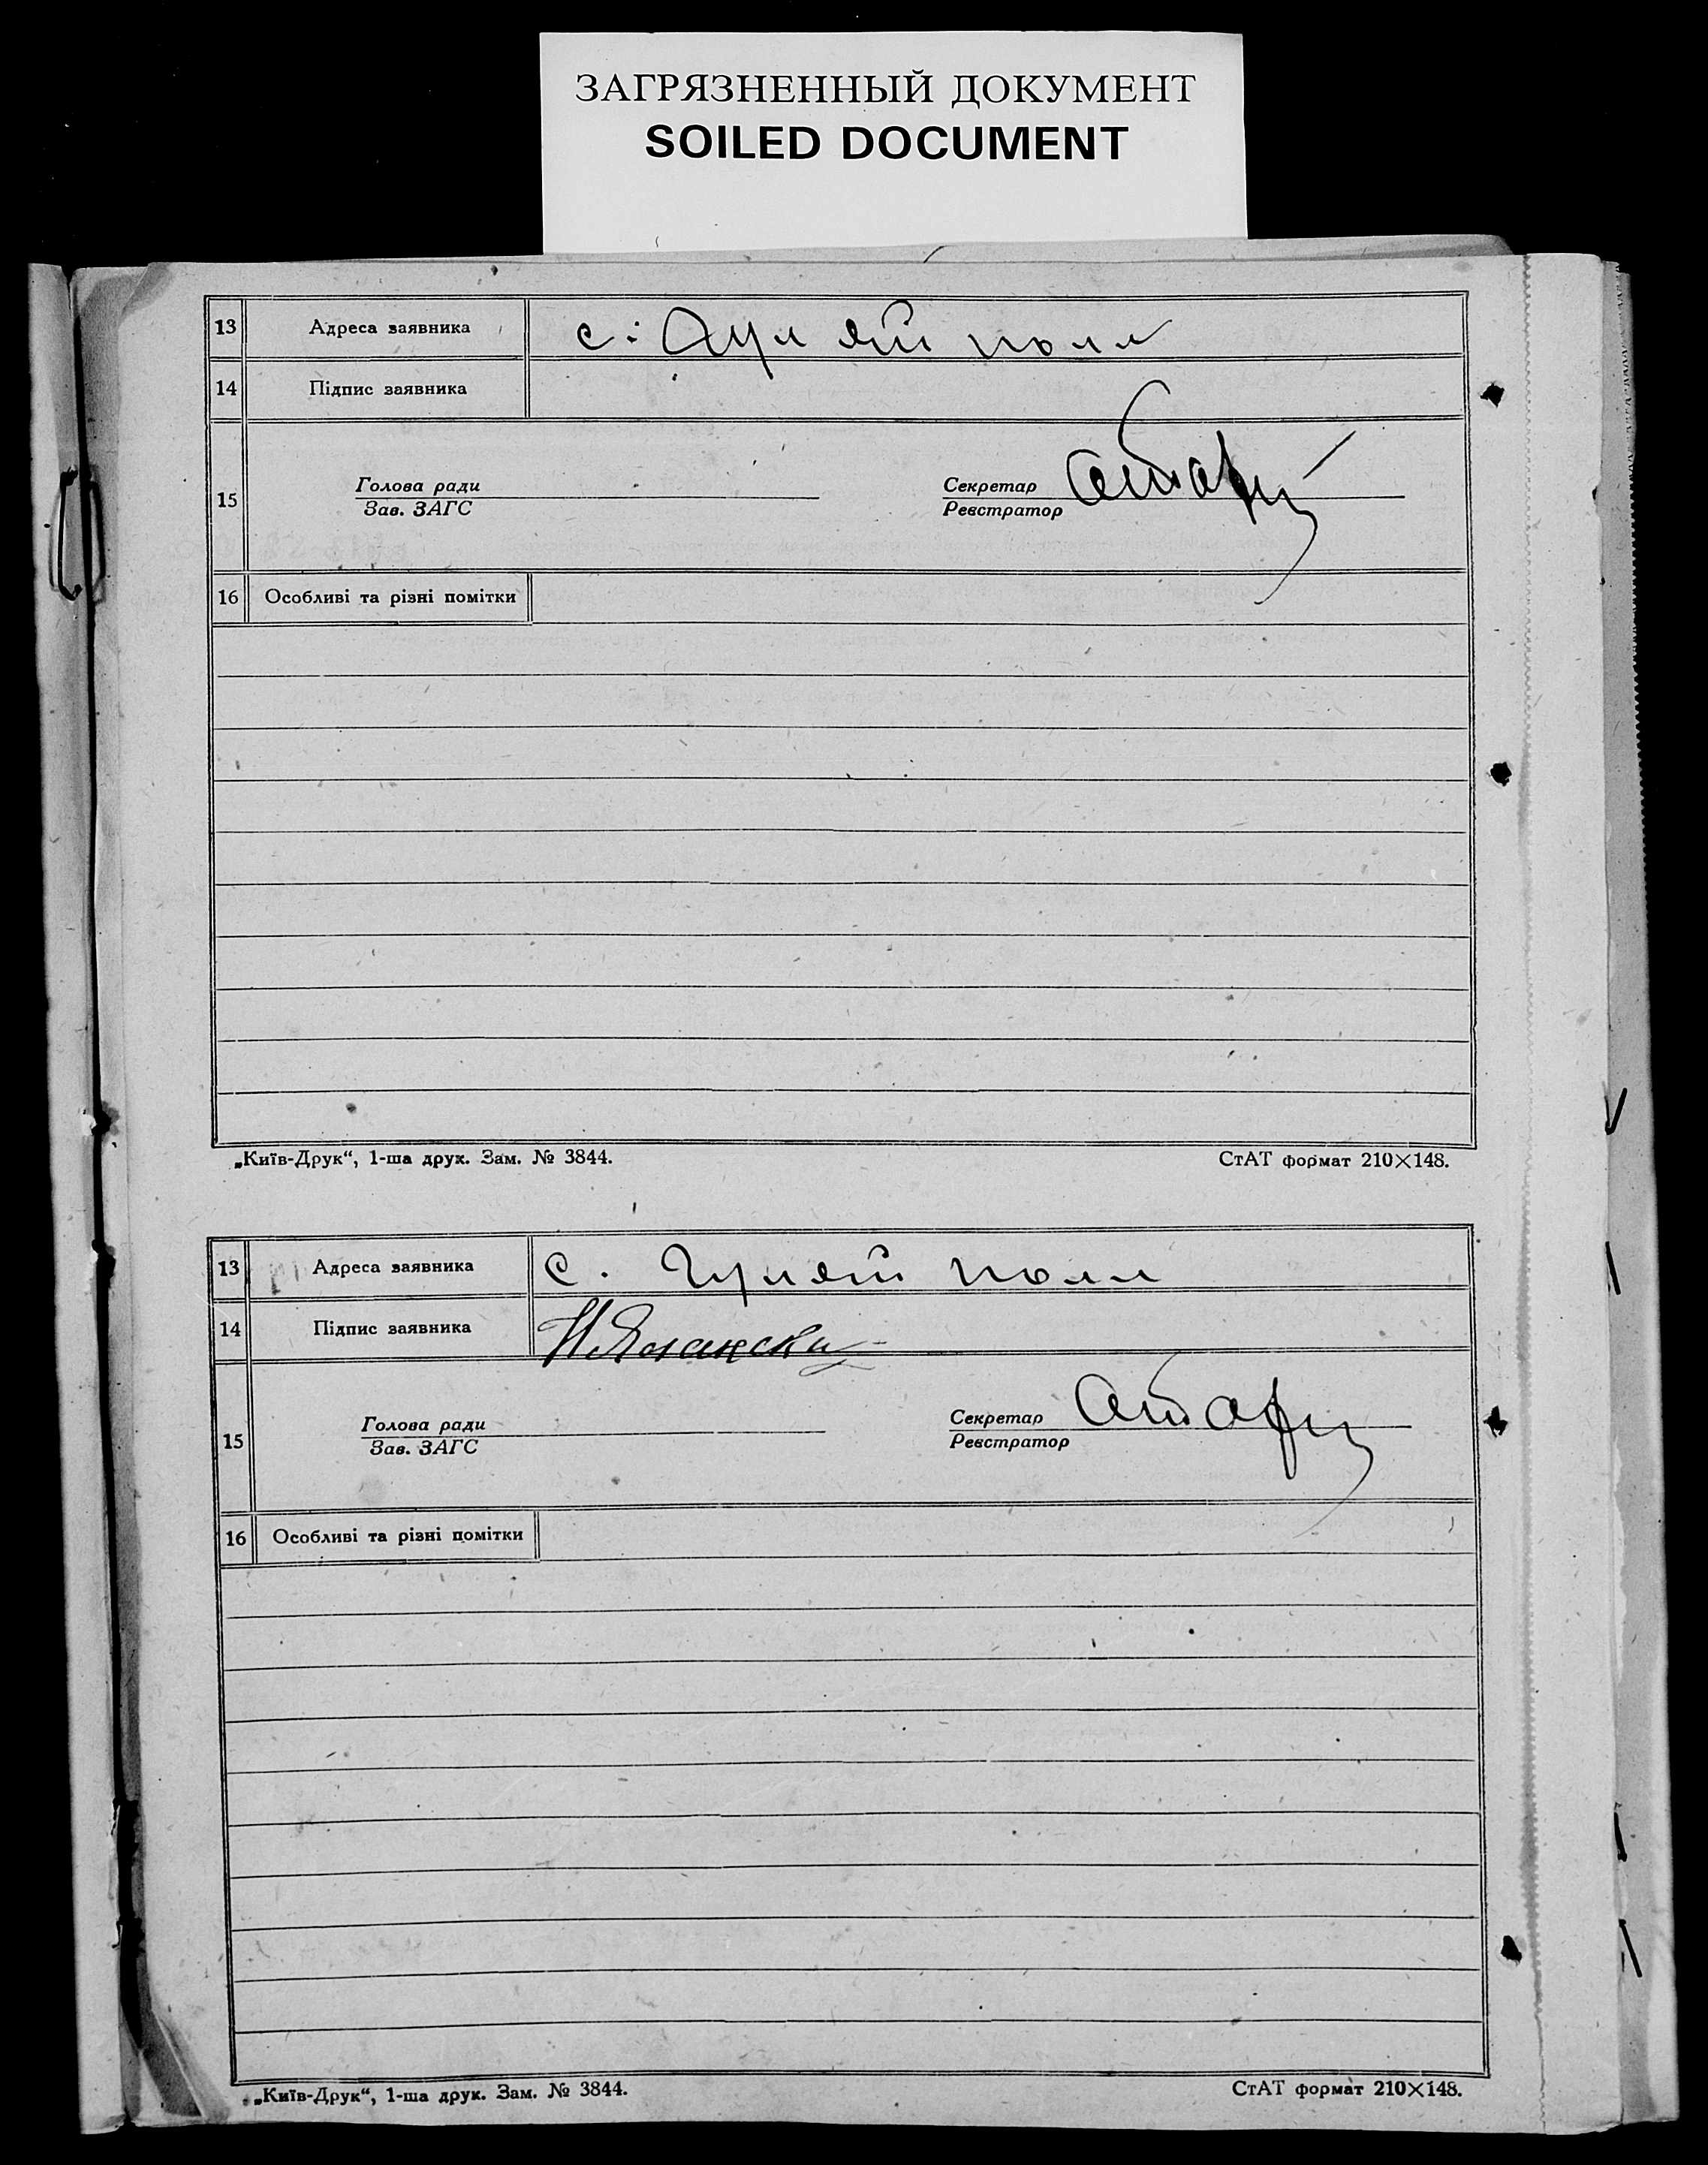 ЗАГРЯЗНЕННЫЙ ДОКУМЕНТ
SOILED DOCUMENT
13 Адреса заявника с. Гуляй поле
14 Підпис заявника
15
Голова ради
Зав. ЗАГС
Секретар
Реєстратор
16 Особливі та різні помітки
„Київ-Друк“, 1-ша друк. Зам. № 3844. СтАТ формат 210×148.
13 Адреса заявника с. Гуляй поле
14 Підпис заявника
15
Голова ради
Зав. ЗАГС
Секретар
Реєстратор
16 Особливі та різні помітки
„Київ-Друк“, 1-ша друк. Зам. № 3844. СтАТ формат 210×148.